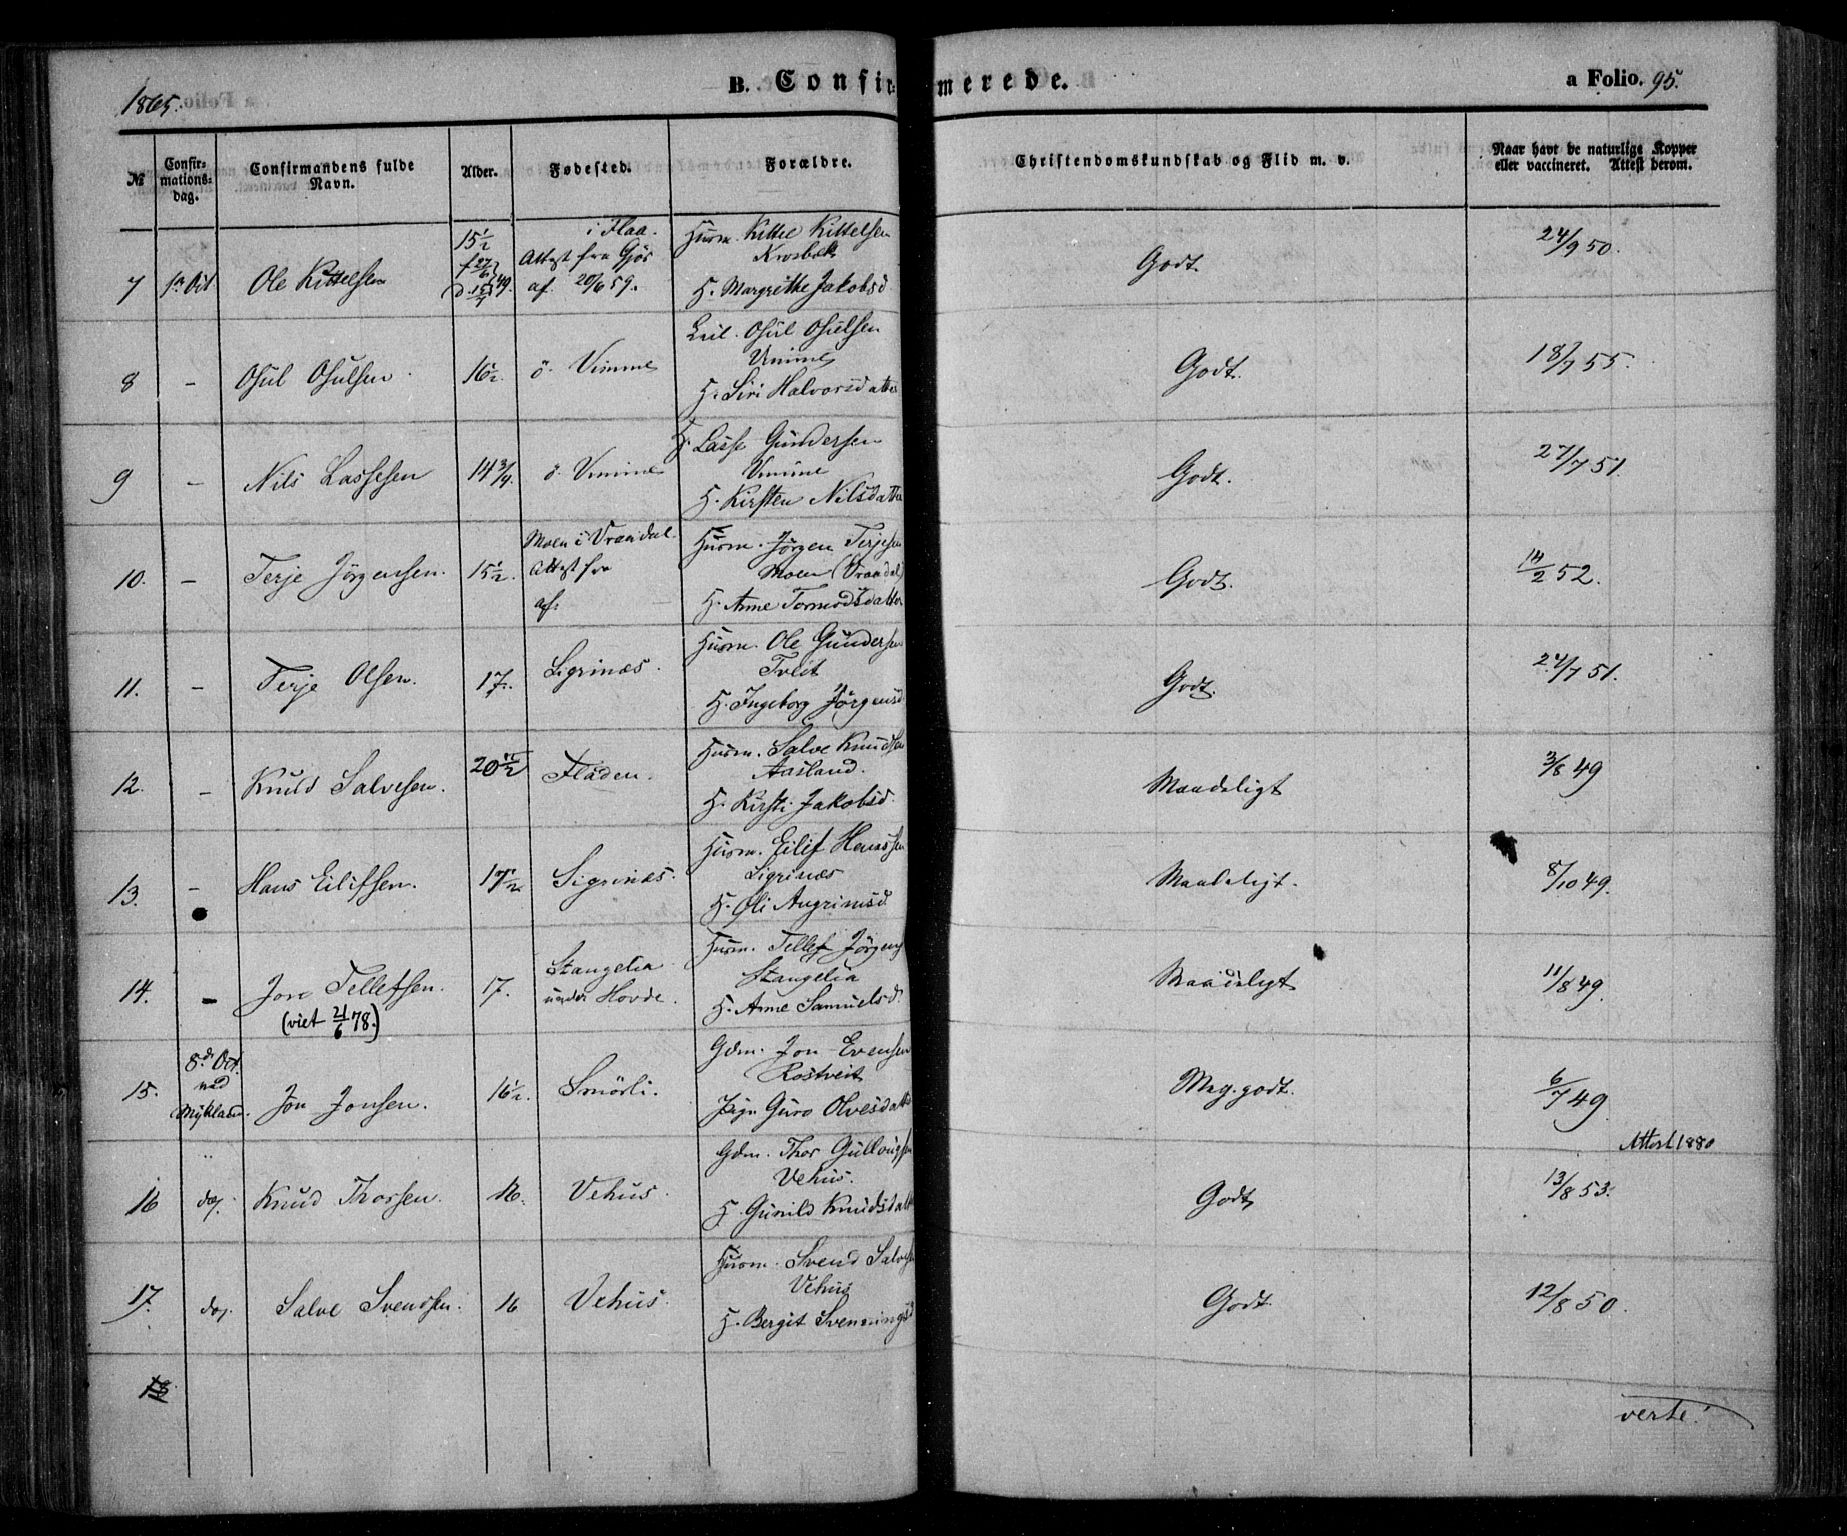 1865.
B. Confirmerede.
a Folio. 95.
№
Confirmations-dag.
Confirmandens fulde Navn.
Alder.
Fødested.
Forældre.
Christendomskundskab og Flid m. v.
Naar havt de naturlige Kopper eller vaccineret. Attest derom.
7 1ste Oct Ole Kittelsen 15 1/2 f 27/6 d 15/7 49. i Flaa. Attest fra Gjös af 20/6 59. Husm. Kittel Kittelsen
H. Margrethe Jakobsd Godt. 24/9 50.
8 - Osul Osulsen. 16 1/2. ö. Vimme Osul Osulsen
Vimme
H. Siri Halvorsdatter Godt. 18/7 55.
9 - Nils Lassesen 14 3/4 ö. Vimme H. Lasse Gundersen
Vimme
H. Kirsten Nilsdatter Godt. 27/7 51.
10. - Terje Jörgensen. 15 1/2. Moen i Vraadal. Attest fra af: Husm. Jörgen Terjesen
Moen (Vraadal)
H. Anne Tormodsdatter Godt. 14/2 52.
11. - Terje Olsen. 17. Sigrinæs. Husm. Ole Gundersen
Tveit
H. Ingeborg Jörgensd Godt. 24/7 51.
12. - Knud Salvesen. 20 1/2 Fladen. Husm. Salve Knudsen
Aasland.
H. Kirsti Jakobsd. Maadeligt 3/8 49
13. - Hans Eilifsen. 17 1/2 Sigrinæs. Husm. Eilif Hanssen
Sigrinæs
H. Oli Angrimsd. Maadeligt. 8/10 49.
14. - Jon Tellefsen. (viet 21/6 78.) 17. Stangelia under Hovde. Husm. Tellef Jörgens
Stangelia
H. Anne Samuelsd. Maadeligt 11/8 49.
15. 8de Oct. ved Mykland. Jon Jonsen. 16 1/2. Smörli. Gdm. Jon Evensen
Rostveit
Pige Guro Olvesdatter Meg. godt. 6/7 49.
Attest 1880
16 do. Knud Thorsen. 16. Vehus. Gdm. Thor Gullougsen
Vehus.
H. Gunild Knudsdatter Godt 13/8 53.
17. do. Salve Svendsen. 16 Vehus. Husm. Svend Salvesen
Vehus
H. Bergit Svenningsd Godt. 12/8 50.
18
verte!